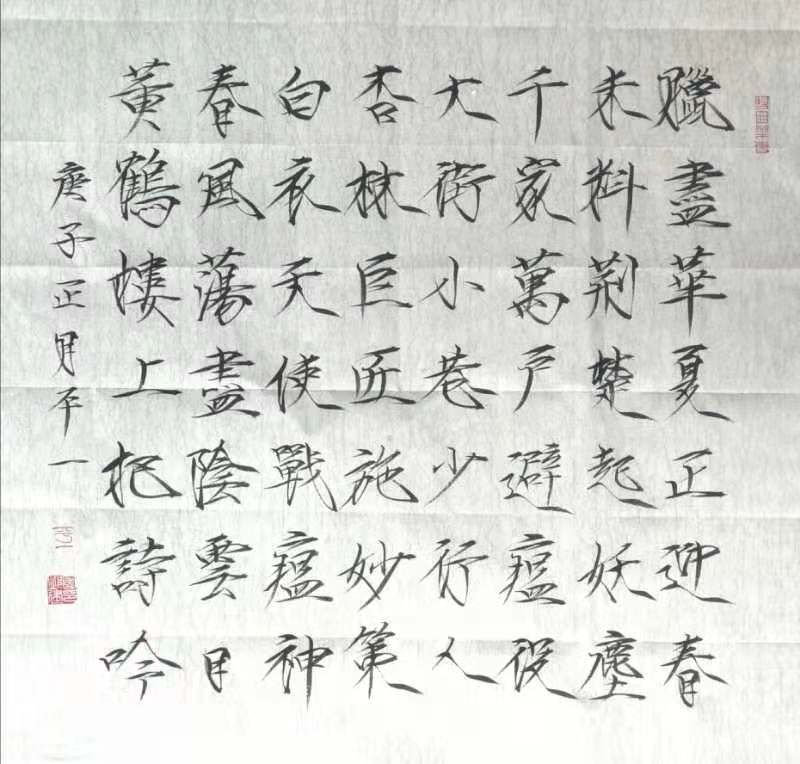 臘盡華夏正迎春
未料荊楚起妖塵
千家萬戶避瘟役
大街小巷少行人
杏林巨匠施妙策
白衣天使戰瘟神
春風蕩盡陰雲日
黃鶴樓上把詩吟
庚子正月平一